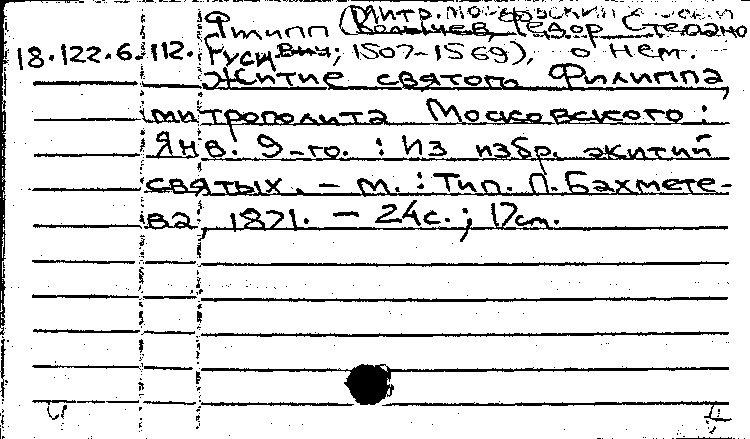 Митр. Московский и
Филипп (Колычев, Федор Степано
18.122.6.112. вич; 1507-1569), о нем.
Житие святого Филиппа,
митрополита Московского:
Янв. 9-го. : Из избр. житий
святых. – М. : Тип. П. Бахмете-
ва, 1871. – 24с.; 17см.